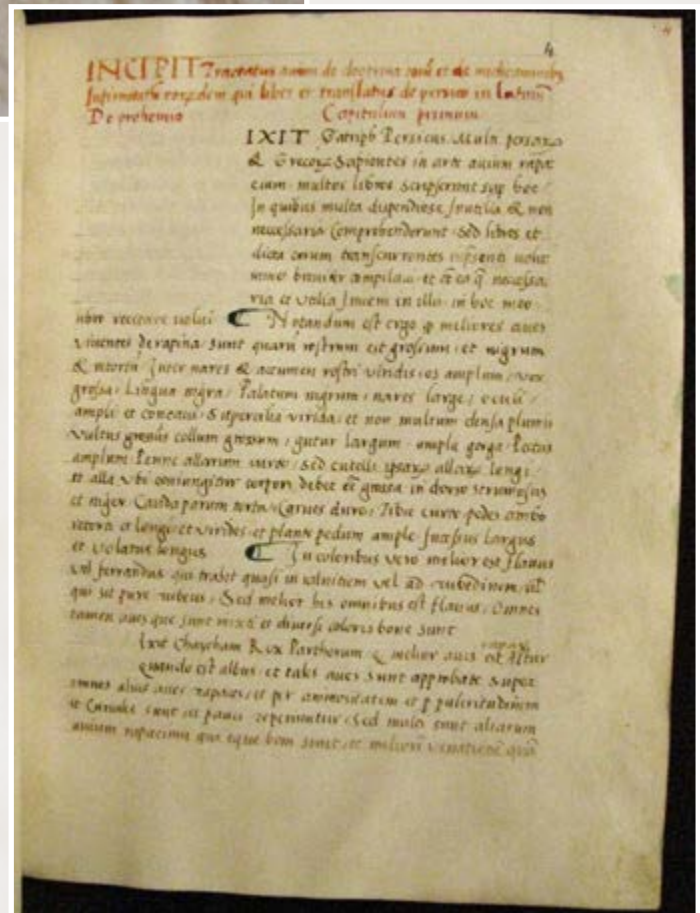 4
INCIPIT Tractatus avium de doctrina et de medicaminibus
Infirmitatum qui liber est translatus de persico in latinum
De prohemio Capitulum primum
IXIT Gatriph Persicus. Multi
& Grecorum Sapientes in arte avium rapa
cium multos libros scripserunt sup hoc
In quibus multa dispendiose Inutilia & non
necessaria Comprehenderunt Sed libros et
dicta eorum transcurrentes
breviter compilavi et ea q necessa
ria et utilia in illo in hoc
volui Notandum est ergo q meliores aves
viventes de rapina sunt quarum rostrum est grossum et nigrum
& Inter nares & acumen rostri viridis os amplum vox
grossa. Lingua nigra. Palatum nigrum nares large oculi
ampli et concavi Supercilia virida et non multum densa plumis
vultus collum grossum gutur largum ample gorga Pectus
amplum Penne allarum Sed cutelli allarum longi
et alla ubi coniungitur corpori debet in dorso
et niger Cauda parum Carnes dure Tibie curte pedes
et longi et virides et plante pedum ample Incessus largus
et volatus longus In coloribus vero melior est flavus
vel ferrandus qui trahit quasi in vel ad rubedinem
qui sit pure rubeus Sed melior his omnibus est flavus Omnes
tamen aves que sunt mixti et diversi coloris bone sunt
ixit Chaycham Rex Parthorum q melior avis rapax est Astur
quando est albus et tales aves sunt approbate super
omnes alias aves rapaces et per animositatem et p pulcritudinem
sunt et pauci reperiuntur Sed multe sunt aliarum
avium rapacium que eque bone sunt et